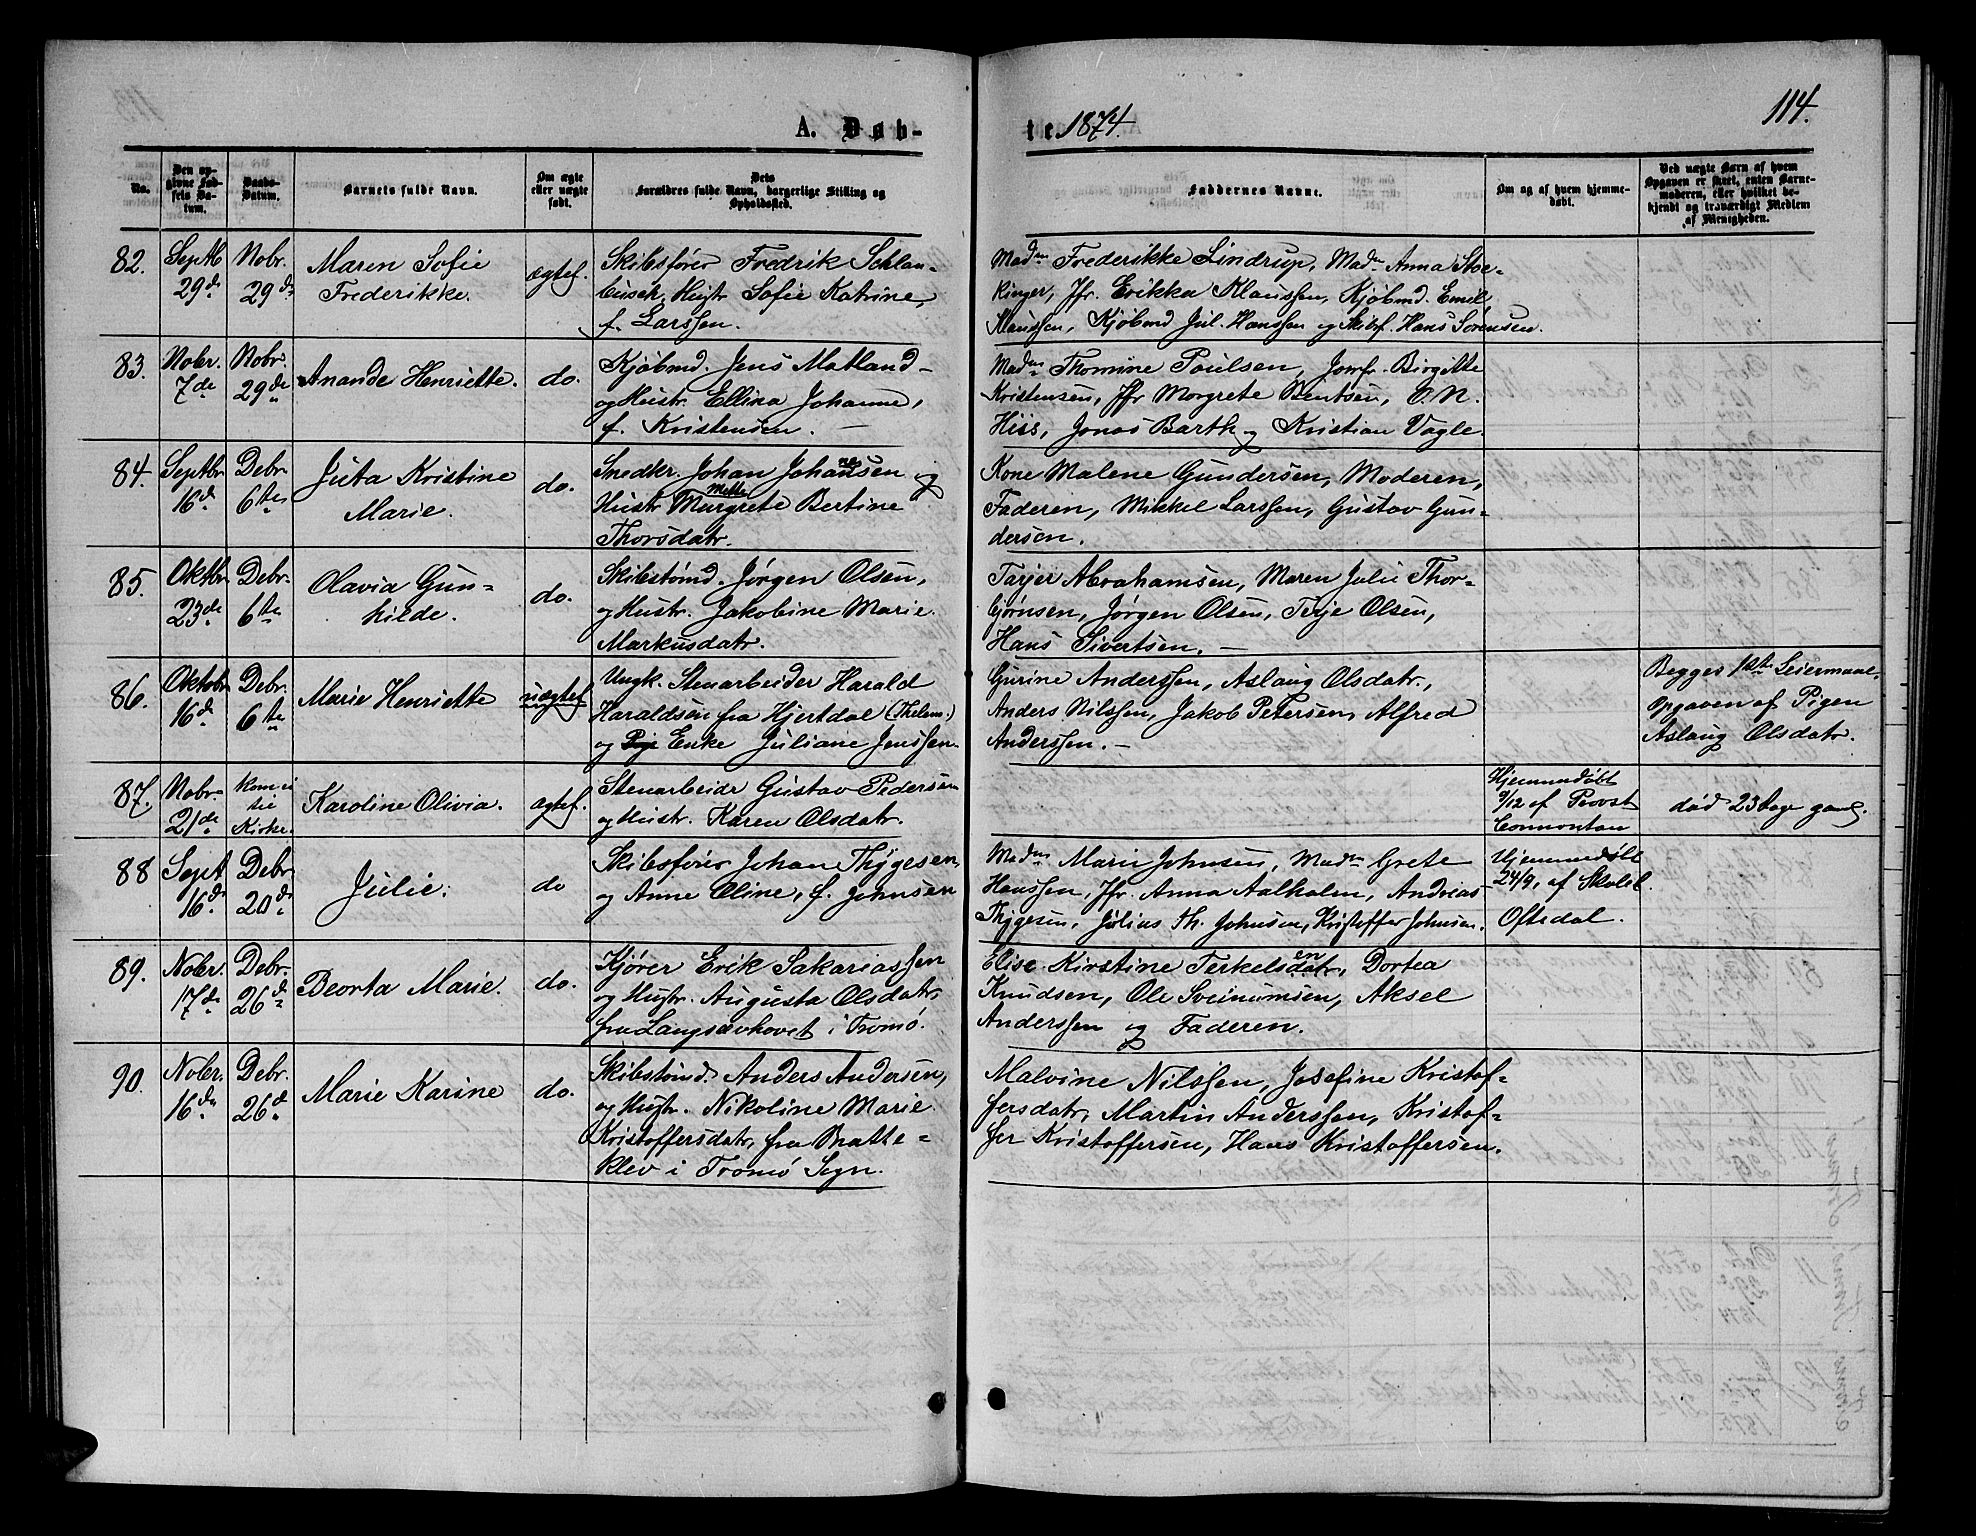 114.
A. Døb-
te 1874.
No.
Den op-
givne Fød-
sels Da-
tum.
Daabs-
Datum.
Barnets fulde Navn.
Om ægte
eller uægte
født.
Dets
Forældres fulde Navn, borgerlige Stilling og
Opholdssted.
Faddernes Navne.
Om og af hvem hjemme-
døbt.
Ved uægte Børn af hvem
Opgaven er skeet, enten Barne-
moderen, eller hvilket be-
kjendt og troværdigt Medlem
af Menigheden.
82.
Septb
29de
Nobr.
29de
Maren Sofie
Frederikke.
ægtef.
Skibsfører Fredrik Schlan-
busch, Hustr Sofie Katrine,
f. Larssen.
Madm Frederikke Lindrup, Madm Anna Stoc-
kinger, Jfr. Erikka Klaussen, Kjøbmd. Emil
Klaussen, Kjøbmd Jul. Hanssen og Skibsf. Hans Sørensen.
83.
Nobr.
7de
Nobr.
29de
Anande Henriette.
do.
Kjøbmd. Jens Matland
og Hustr. Ellina Johanne,
f. Kristensen.
Madm Thomine Poulsen, Jomfr. Birgitte
Kristensen, Jfr Morgrete Bentsen, O. N.
Hiss, Jonas Barth og Kristian Vagle.
84.
Septbr
16d
Debr.
6te
Juta Kristine
Marie.
do.
Snedkr. Johan Johannsen og
Hustr Mette Margrete Bertine
Thorsdatr.
Kone Malene Gundersen, Moderen,
Faderen, Mikkel Larssen, Gustav Gun-
dersen.
85.
Oktbr
23de
Debr.
6te
Olavia Gun-
hilde.
do.
Skibstømd. Jørgen Olsen,
og Hustr. Jakobine Marie
Markusdatr.
Tarjer Abrahamsen, Maren Julie Thor-
bjørnsen, Jørgen Olsen, Terje Olsen,
Hans Sivertsen.
86.
Oktobr
16d
Debr.
6te
Marie Henriette
uægtef
Ungk. Stenarbeider Harald
Haraldsen fra Hjertdal (Thelem.)
og Pige Enke Juliane Jenssen.
Gurine Anderssen, Aslaug Olsdatr.,
Anders Nilssen, Jakob Petersen, Alfred
Anderssen.
Begges 1ste Leiermaal,
Opgaven af Pigen
Aslaug Olsdatr.
87.
Nobr
21de
Kom ei
til
Kirke.
Karoline Olivia.
ægtef.
Stenarbeidr Gustav Pedersen
og Hustr. Karen Olsdatr.
Hjemmedøbt
9/12 af Provst
død 23 dage gaml.
88
Sept
16de
Debr
20de
Julie.
do
Skibsfører Johan Thygesen,
og Anne Oline, f. Johnsen
Madm Marie Johnsen, Madm Grete
Hanssen, Jfr. Anna Aalholm, Andreas
Thygesen, Julius Th. Johnsen, Kristoffer Johnsen.
Hjemmedøbt
24/9, af Skolel.
Oftedal.
89.
Nobr.
17de
Debr.
26de
Deorta Marie.
do.
Kjører Erik Sakariassen
og Hustr. Augusta Olsdatr,
fra Langsævhovet i Tromø.
Elise Kirstine Terkelsdatr, Dortea
Knudsen, Ole Sveinumsen, Aksel
Anderssen og Faderen.
90.
Nobr.
16de
Debr.
26d
Marie Karine
do.
Skibstømd. Anders Andersen,
og Hustr. Nikoline Marie
Kristoffersdatr, fra Bratte-
klev i Tromø Sogn.
Malvine Nilssen, Josefine Kristof-
fersdatr, Martin Anderssen, Kristof-
fer Kristoffersen, Hans Kristoffersen.